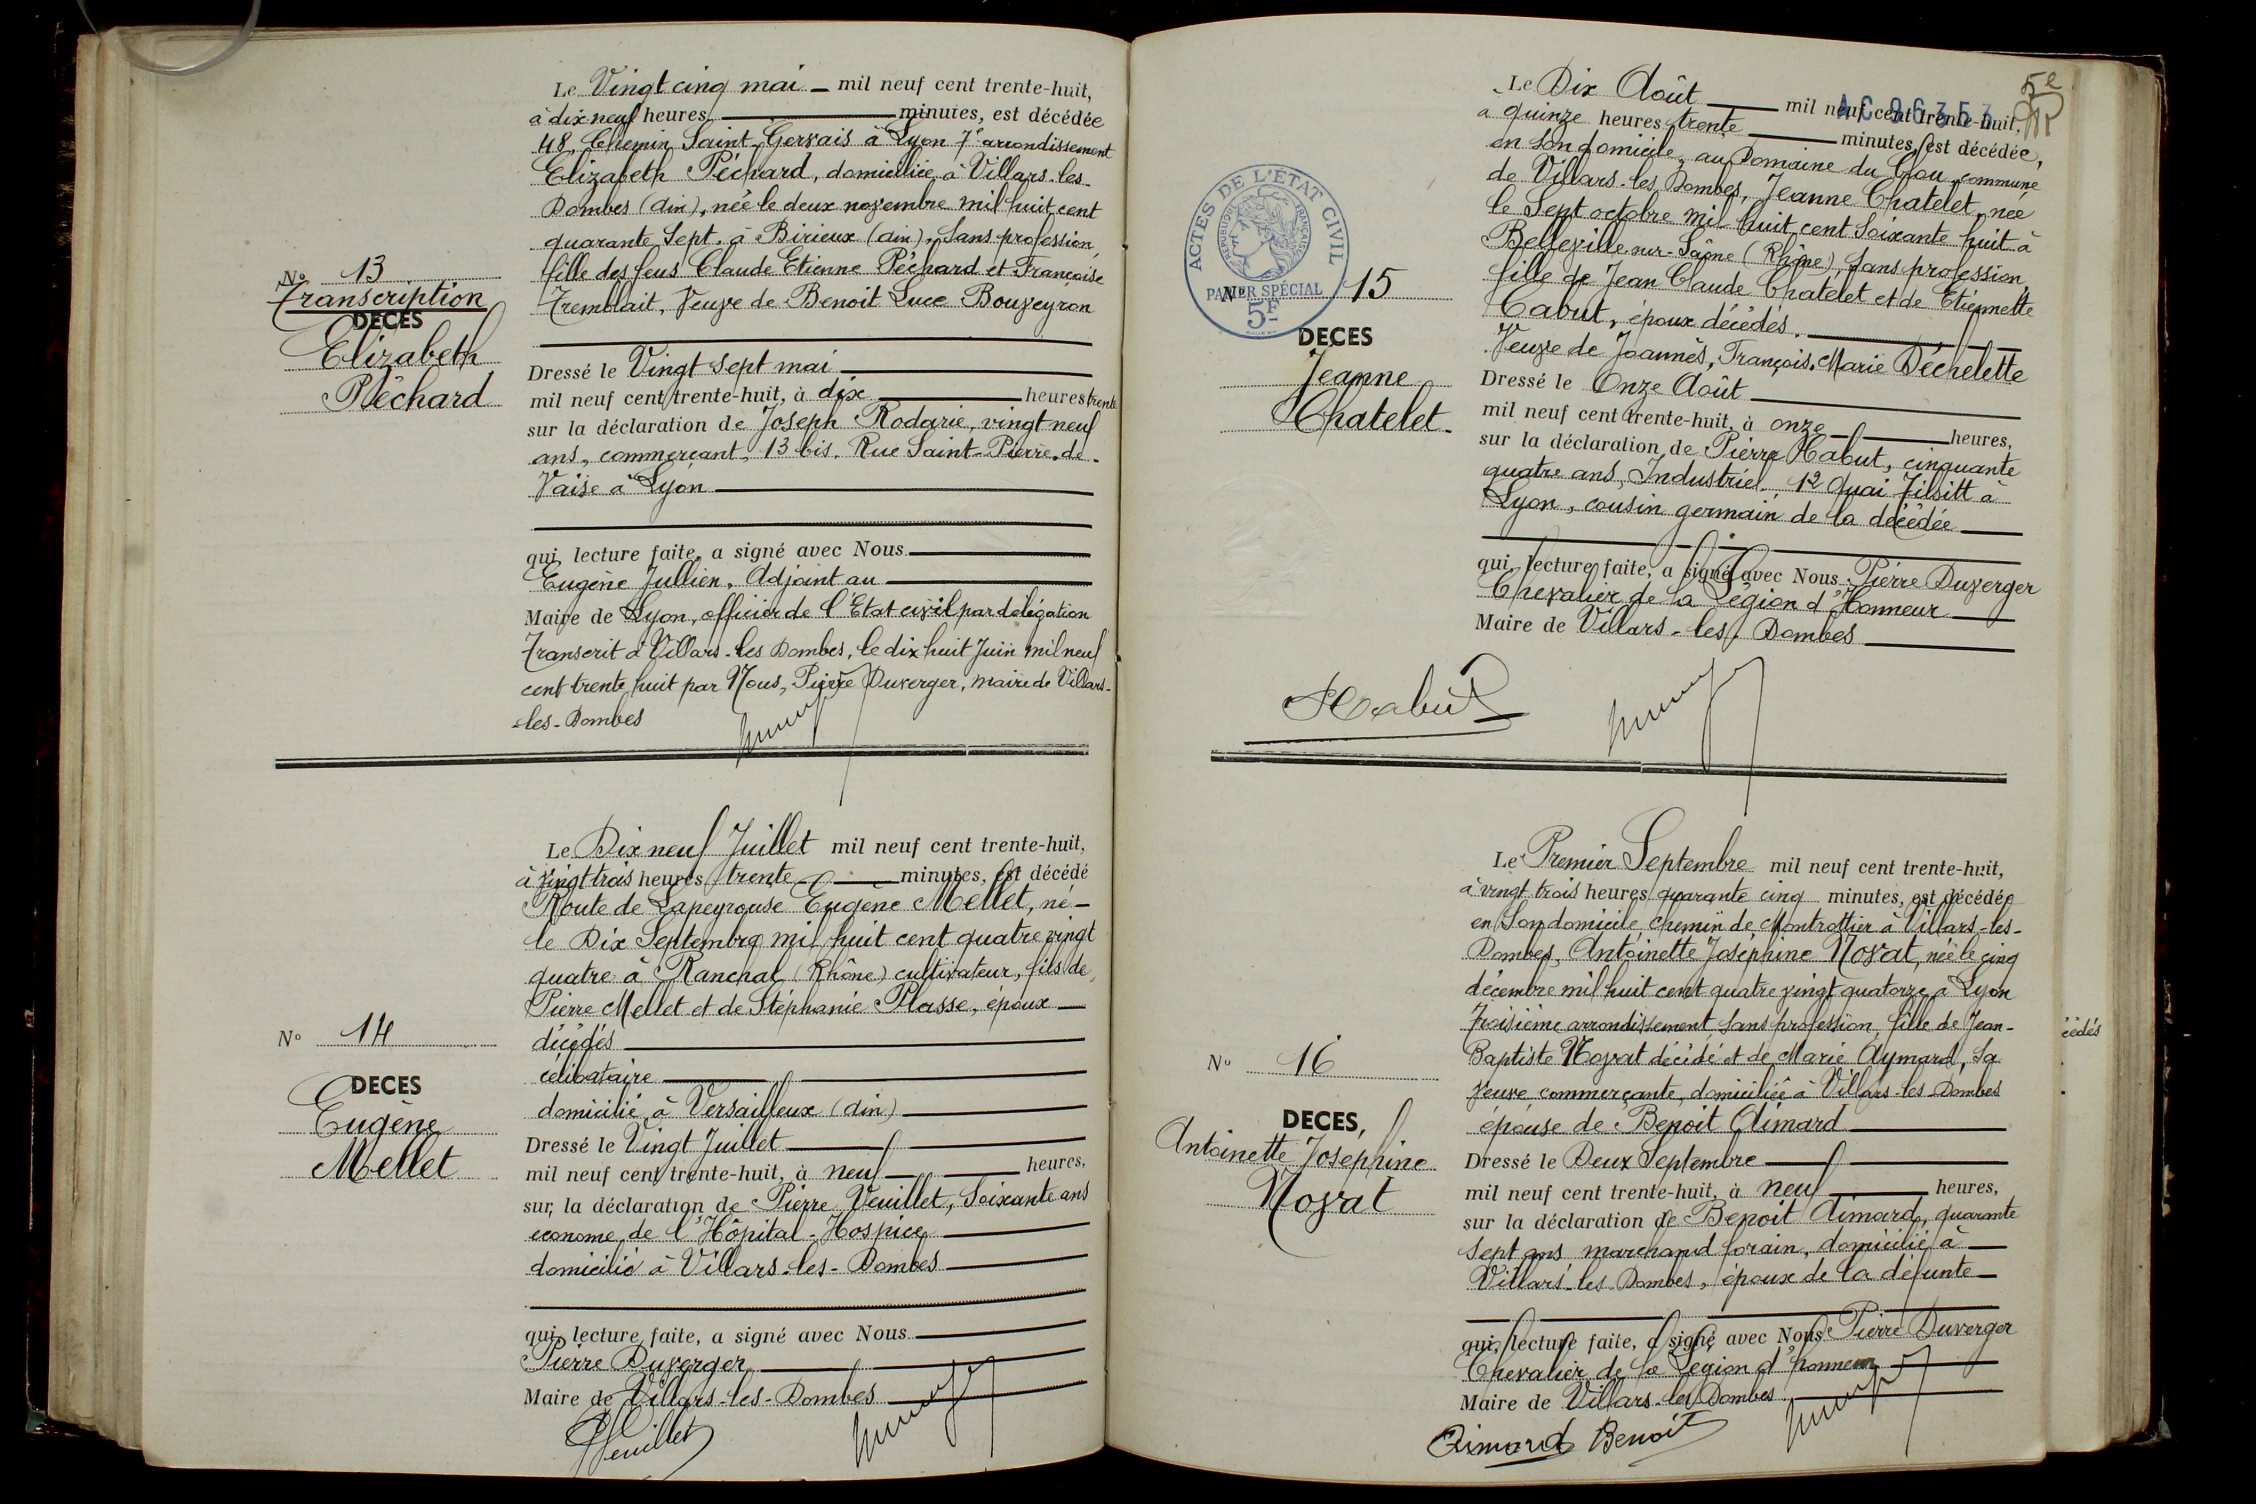 Nº 13
Transcription
DECES
Elizabeth
Péchard
Le Vingt cinq mai mil neuf cent trente-huit,
à dix neuf heures minutes, est décédée
48, Chemin Saint-Gervais à Lyon 7e arrondissement
Elizabeth Péchard, domiciliée à Villars-les-
Dombes (Ain), née le deux novembre mil huit cent
quarante sept à Birieux (Ain), Sans profession,
fille des feus Claude Etienne Péchard et Françoise
Tremblait, Veuve de Benoit Luce Bouveyron
Dressé le Vingt sept mai
mil neuf cent trente-huit, à dix heures trente
sur la déclaration de Joseph Rodarie, vingt neuf
ans, commerçant, 13 bis, Rue Saint-Pierre-de-
Vaise à Lyon
qui, lecture faite, a signé avec Nous
Eugène Jullien, Adjoint au
Maire de Lyon, officier de l'Etat civil par délégation
Transcrit à Villars-les Dombes, le dix huit Juin mil neuf
cent trente huit par Nous, Pierre Duverger, maire de Villars-
-les-Dombes
Nº 14
DECES
Eugène
Mellet
Le Dix neuf Juillet mil neuf cent trente-huit,
à vingt trois heures trente minutes, est décédé
Route de Lapeyrouse Eugène Mellet, né
le Dix Septembre mil huit cent quatre vingt
quatre à Ranchal (Rhône) cultivateur, fils de
Pierre Mellet et de Stéphanie Plasse, époux
décédés
célibataire
domicilié à Versailleux (Ain)
Dressé le Vingt Juillet
mil neuf cent trente-huit, à neuf heures,
sur la déclaration de Pierre Veuillet, Soixante ans
econome de l'Hôpital-Hospice
domicilié à Villars-les-Dombes
qui, lecture faite, a signé avec Nous
Pierre Duverger
Maire de Villars-les-Dombes
PVeuillet
5e
AC 96353
ACTES DE L'ÉTAT CIVIL
RÉPUBLIQUE FRANÇAISE
PAPIER SPÉCIAL
5F
Nº 15
DECES
Jeanne
Chatelet
Le Dix Août mil neuf cent trente-huit,
à quinze heures trente minutes, est décédée,
en Son domicile, au Domaine du Clou, commune
de Villars-les Dombes, Jeanne Chatelet, née
le Sept octobre mil huit cent Soixante huit à
Belleville-sur-Saône (Rhône), Sans profession,
fille de Jean Claude Chatelet et de Etiennette
Cabut, époux décédés.
Veuve de Joannès, François, Marie Déchelette
Dressé le Onze Août
mil neuf cent trente-huit, à onze heures,
sur la déclaration de Pierre Habut, cinquante
quatre ans, Industriel, 12 Quai Tilsitt à
Lyon, cousin germain de la décédée
qui, lecture faite, a signé avec Nous Pierre Duverger
Chevalier de la Légion d'Honneur
Maire de Villars-les-Dombes
Habut
Nº 16
DECES,
Antoinette Joséphine
Novat
Le Premier Septembre mil neuf cent trente-huit,
à vingt trois heures quarante cinq minutes, est décédée
en Son domicile, chemin de Montrottier à Villars-les-
Dombes, Antoinette Joséphine Novat, née le cinq
décembre mil huit cent quatre vingt quatorze à Lyon
troisième arrondissement, Sans profession, fille de Jean-
Baptiste Novat décédé et de Marie Aymard, Sa
veuve commerçante, domiciliée à Villars-les Dombes
épouse de Benoit Aimard
Dressé le Deux Septembre
mil neuf cent trente-huit, à neuf heures,
sur la déclaration de Benoit Aimard, quarante
Sept ans, marchand forain, domicilié à
Villars-les Dombes, époux de la défunte
qui, lecture faite, a signé avec Nous Pierre Duverger
Chevalier de la Légion d'honneur
Maire de Villars-les Dombes
Aimard Benoit
cédés